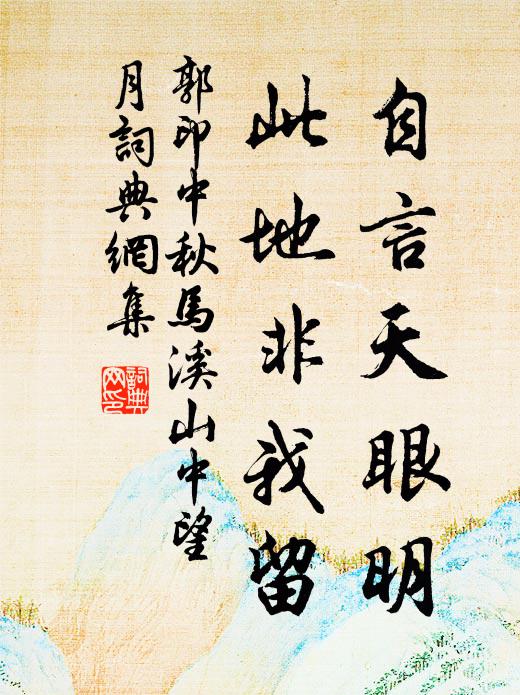 自言天眼明
此地非我留
郭印中秋馬溪山中望
月詞典網集
詞典
网印